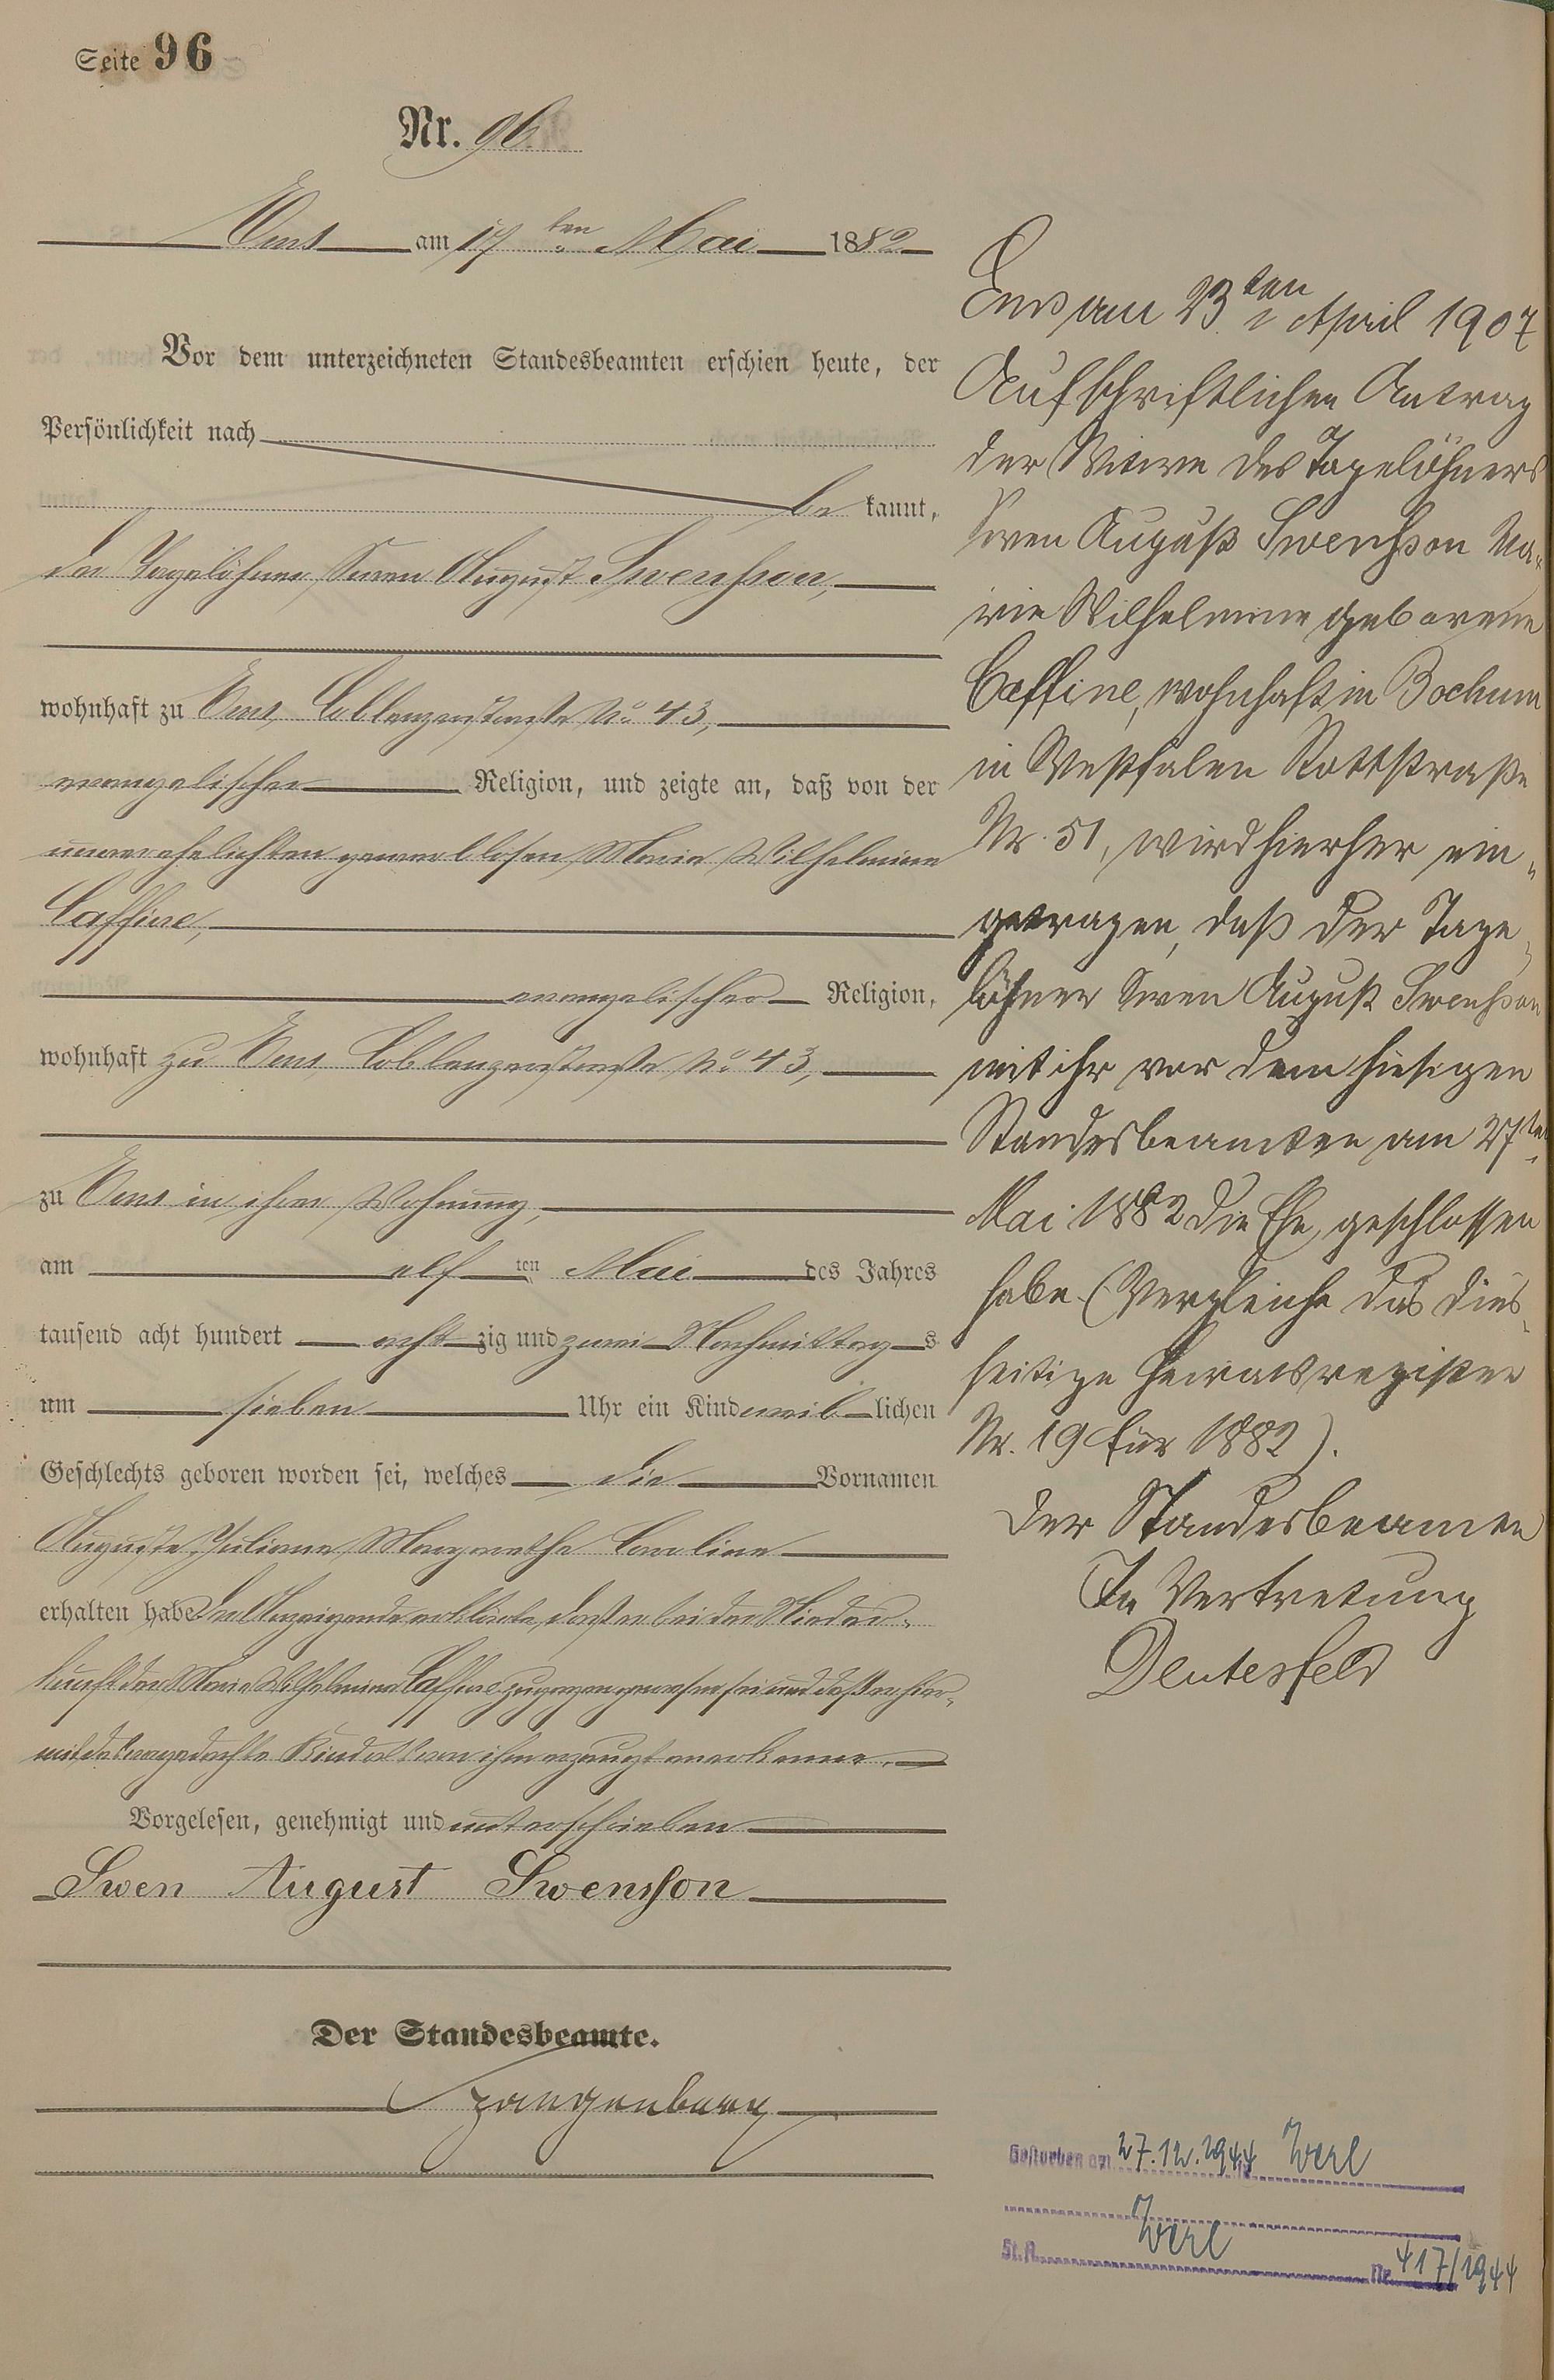 Seite 96
Nr. 96.
Ems am 17ten Mai 1882
Vor dem unterzeichneten Standesbeamten erschien heute, der
Persönlichkeit nach
be kannt,
der Tagelöhner Swen August Swensson,
wohnhaft zu Ems, Coblenzerstraße No 43,
evangelischer Religion, und zeigte an, daß von der
unverehelichten gewerblosen Marie Wilhelmine
Caffine,
evangelischer Religion,
wohnhaft zu Ems, Coblenzerstraße No 43,
zu Ems in ihrer Wohnung,
am elf ten Mai des Jahres
tausend acht hundert acht zig und zwei Nachmittag s
um sieben Uhr ein Kind weib lichen
Geschlechts geboren worden sei, welches die Vornamen
Auguste Juliane Margarethe Caroline
erhalten habe. Der Anzeigende erklärte, daß er bei der Nieder-
kunft der Marie Wilhelmine Caffine zugegen gewesen sei und daß er hier-
mit das vorgedachte Kind als von ihm erzeugt anerkenne.
Vorgelesen, genehmigt und unterschrieben
Swen August Swensson
Der Standesbeamte.
Ems am 23ten April 1907
Auf schriftlichen Antrag
der Witwe des Tagelöhners
Swen August Swensson Ma-
rie Wilhelmine geborene
Caffine, wohnhaft in Bochum
in Westfalen Rottstraße
Nr. 51, wird hierher ein-
getragen, daß der Tage-
löhner Swen August Swensson
mit ihr vor dem hiesigen
Standesbeamten am 27ten
Mai 1882 die Ehe geschlossen
habe. (Vergleiche das dies-
seitige Heiratsregister
Nr. 19 für 1882).
Der Standesbeamte
In Vertretung
Deutesfeld
Gestorben am 27.12.1944 in Werl
St.A. Werl Nr. 417/1944